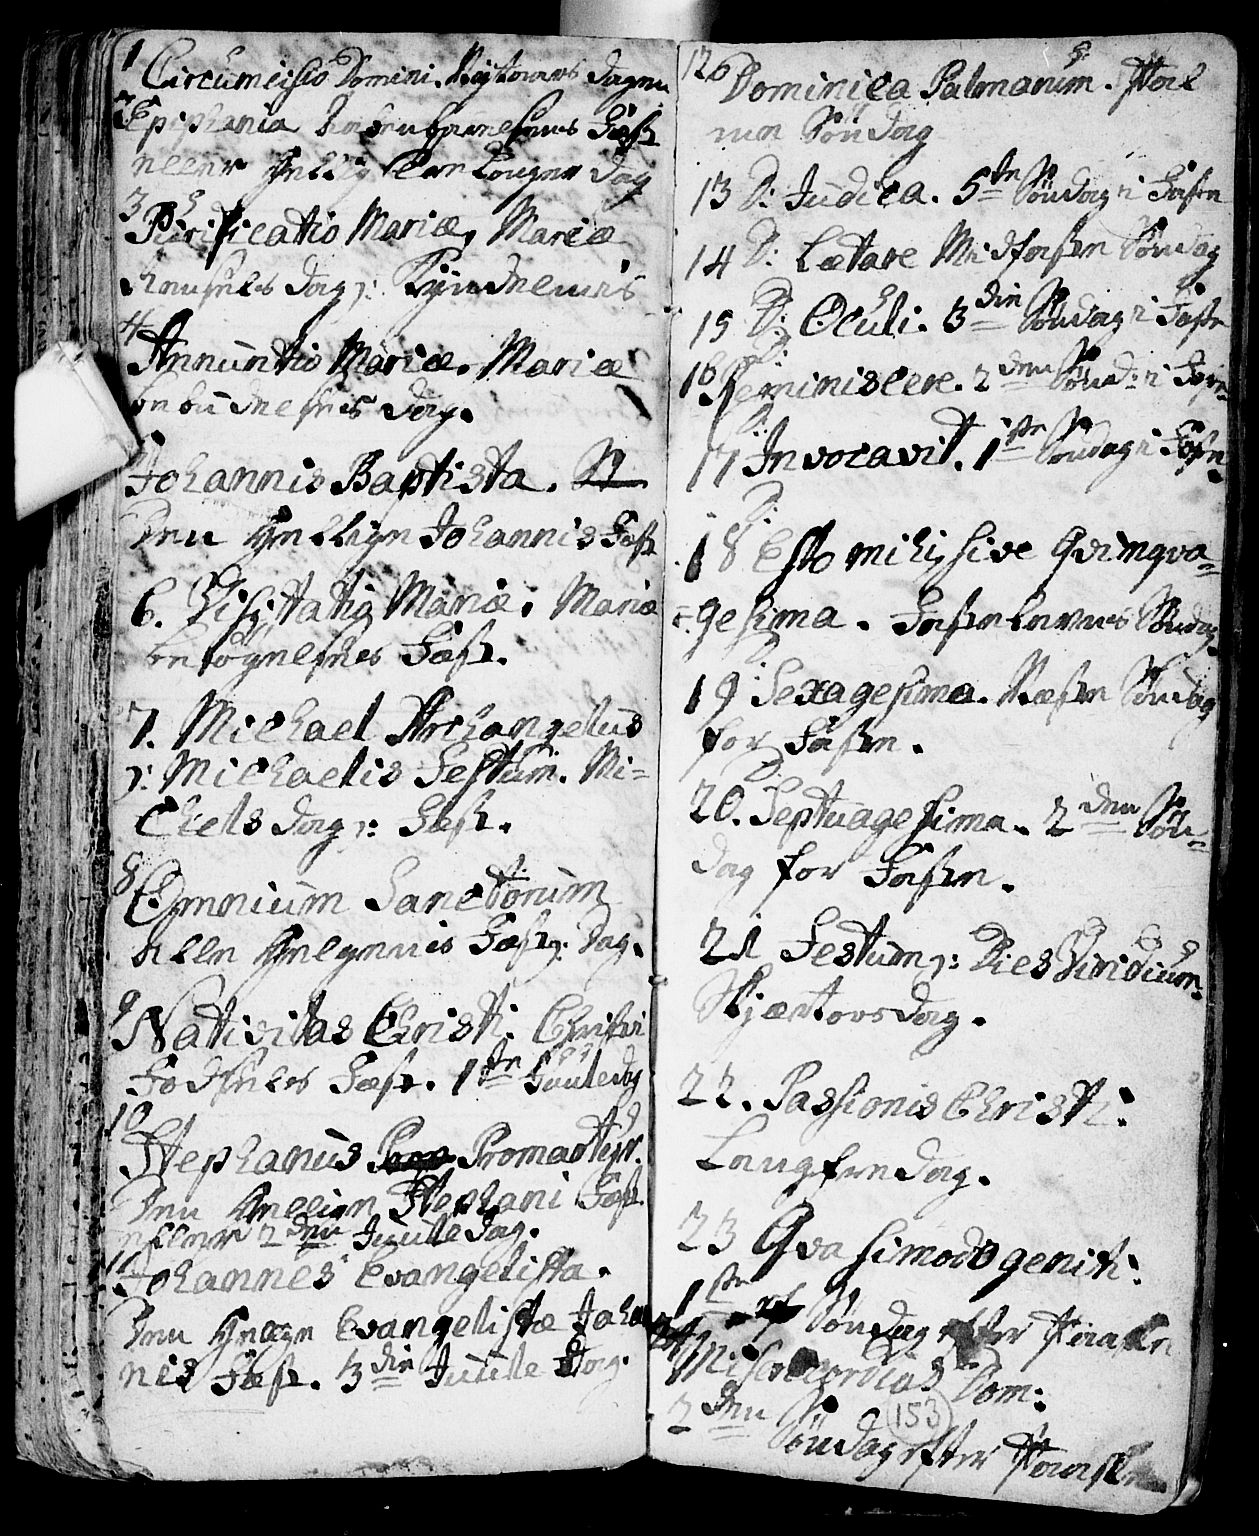 1 Circumcisio Domini. Nytaars dagen
2 Epiphania
eller Hellig tre Konger dag
3
Purificatio Mariæ, Mariæ
Renselses dag ɔ: Kyndelmis
4
Annuntio Mariæ. Mariæ
bebudelses dag.
Johannis Baptista.
Den Hellige Johannis Fæst
6. Visitatio Mariæ. Mariæ
besøgnelses Fæst.
7. Michael Archangelus
ɔ: Michaelis Festum. Mi-
chels dag ɔ: Fæst.
8
Omnium Sanctorum
Alle Helgenis Fæst ɔ: dag.
9
Nativitas Christi. Christi
Fødselss Fæst. 1ste Juuledag
10
Stephanus Promartyr.
Den Hellige Stephani Fæst
eller 2den Juule dag.
11
Johannes Evangelista.
Den Hellige Evangelistæ Johan
nis Fæst. 3die Juule Dag.
12 Dominica Palmarum. Pal
me Søndag
13 D: Judica. 5te Søndag i Fasten
14 D: Lætare Midfasten Søndag
15 D: Oculi. 3die Søndag i Faste
16 D: Reminiscere. 2den Sønd: i Faste
17 D: Invocavit. 1ste Søndag i Fasten.
18 D: Esto mihi sive Qvinqva-
gesima. Fastelavns Søndag.
19 D: Sexagesima. Næste Søndag
for Fasten.
20. D: Septuagesima. 2den Søn-
dag for Fasten.
21 Festum ɔ: Dies Viridium.
Skjærtorsdag.
22. Passionis Christi.
Langfredag.
23 Qvasimodogeniti.
1ste Søndag efter Paaske
Misericordias Dom:
2den Søndag efter Paaske
153